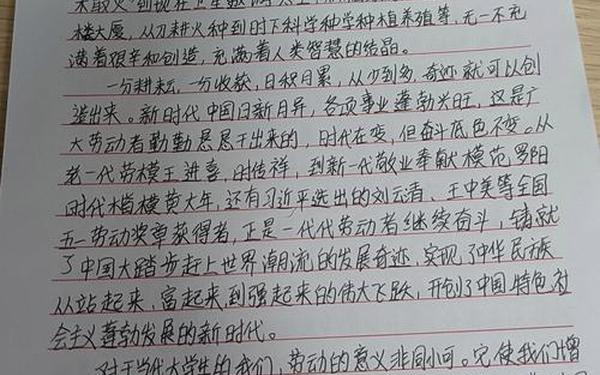 楼大厦，从刀耕火种到时下科学种学种植养殖等，无一不充
满着艰辛和创造，充满着人类智慧的结晶。
一分耕耘，一分收获，日积月累，从少到多，奇迹就可以创
造出来。新时代中国日新月异，各项事业蓬勃兴旺，这是广
大劳动者勤勤恳恳干出来的，时代在变，但奋斗底色不变。从
老一代劳模王进喜，时传祥，到新一代敬业奉献模范罗阳
时代楷模黄大年，还有习近平选出的刘云清、王中美等全国
五一劳动奖章获得者，正是一代代劳动者继续奋斗，铸就
了中国大踏步赶上世界潮流的发展奇迹，实现了中华民族
从站起来，富起来，到强起来的伟大飞跃，开创了中国特色社
会主义蓬勃发展的新时代。
对于当代大学生的我们，劳动的意义非同小可。它使我们增